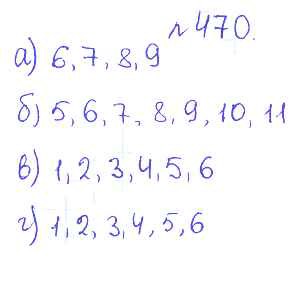 №470.
а) 6, 7, 8, 9
б) 5, 6, 7, 8, 9, 10, 11
в) 1, 2, 3, 4, 5, 6
г) 1, 2, 3, 4, 5, 6